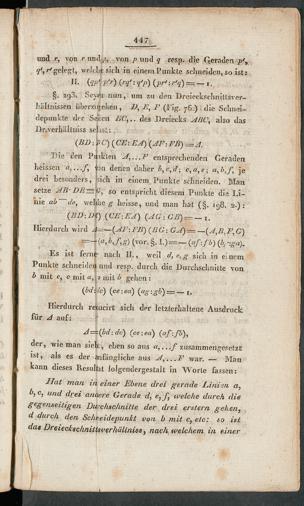 447
und r, von r und p, von p und q resp. die Geraden p',
q', r' gelegt, welche sich in einem Punkte schneiden, so ist:
II. (qp':p'r) (rq':q'p) (pr':r'q) = — 1.
§. 293. Seyen nun, um zu den Dreieckschnittsver-
hältnissen überzugehen, D, E, F (Fig. 76.) die Schnei-
depunkte der Seiten BC,.. des Dreiecks ABC, also das
Dr.verhältniss selbst:
(BD:DC) (CE:EA) (AF:FB) = A.
Die den Punkten A,...F entsprechenden Geraden
heissen a,...f, von denen daher b, c, d; c, a, e; a, b, f, je
drei besonders, sich in einem Punkte schneiden. Man
setze AB·DE≡G, so entspricht diesem Punkte die Li-
nie ab·de, welche g heisse, und man hat (§. 198. 2.):
(BD:DC) (CE:EA) (AG:GB) = — 1.
Hierdurch wird A=—(AF:FB) (BG:GA)=—(A,B,F,G)
=—(a,b,f,g) (vor. §. I.)=—(af:fb) (bg:ga).
Es ist ferne nach II., weil d, e, g sich in einem
Punkte schneiden und resp. durch die Durchschnitte von
b mit c, c mit a, a mit b gehen:
(bd:dc) (ce:ea) (ag:gb) = — 1.
Hierdurch reducirt sich der letzterhaltene Ausdruck
für A auf:
A=(bd:dc) (ce:ea) (af:fb),
der, wie man sieht, eben so aus a,...f zusammengesetzt
ist, als es der anfängliche aus A,...F war. — Man
kann dieses Resultat folgendergestalt in Worte fassen:
Hat man in einer Ebene drei gerade Linien a,
b, c, und drei andere Gerade d, e, f, welche durch die
gegenseitigen Durchschnitte der drei erstern gehen,
d durch den Schneidepunkt von b mit c, etc: so ist
das Dreieckschnittsverhältniss, nach welchem in einer